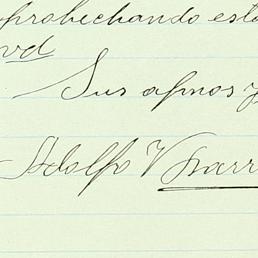 aprobechando esta
vd
Sus afmos y
Adolfo Ybarr